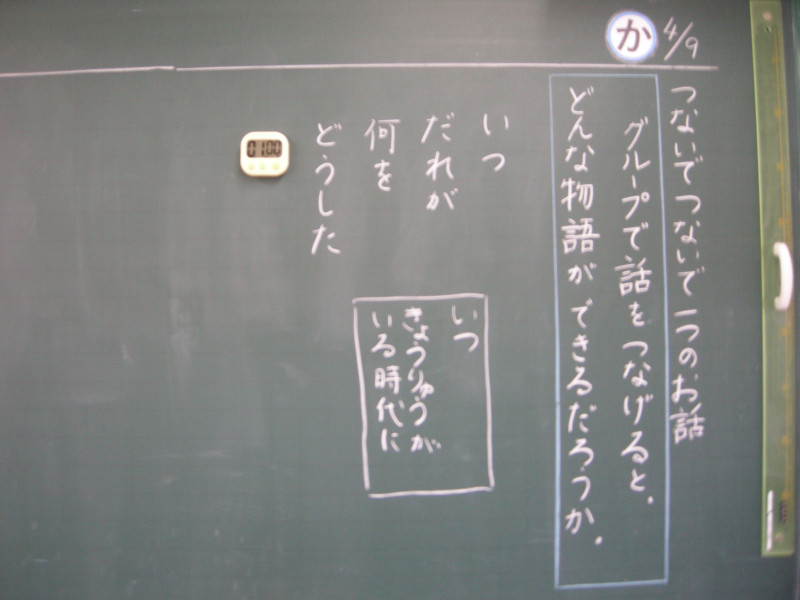 4/9
か
つないでつないで一つのお話
グループで話をつなげると、
どんな物語ができるだろうか。
いつ
だれが
何を
どうした
いつ
きょうりゅうが
いる時代に
0100